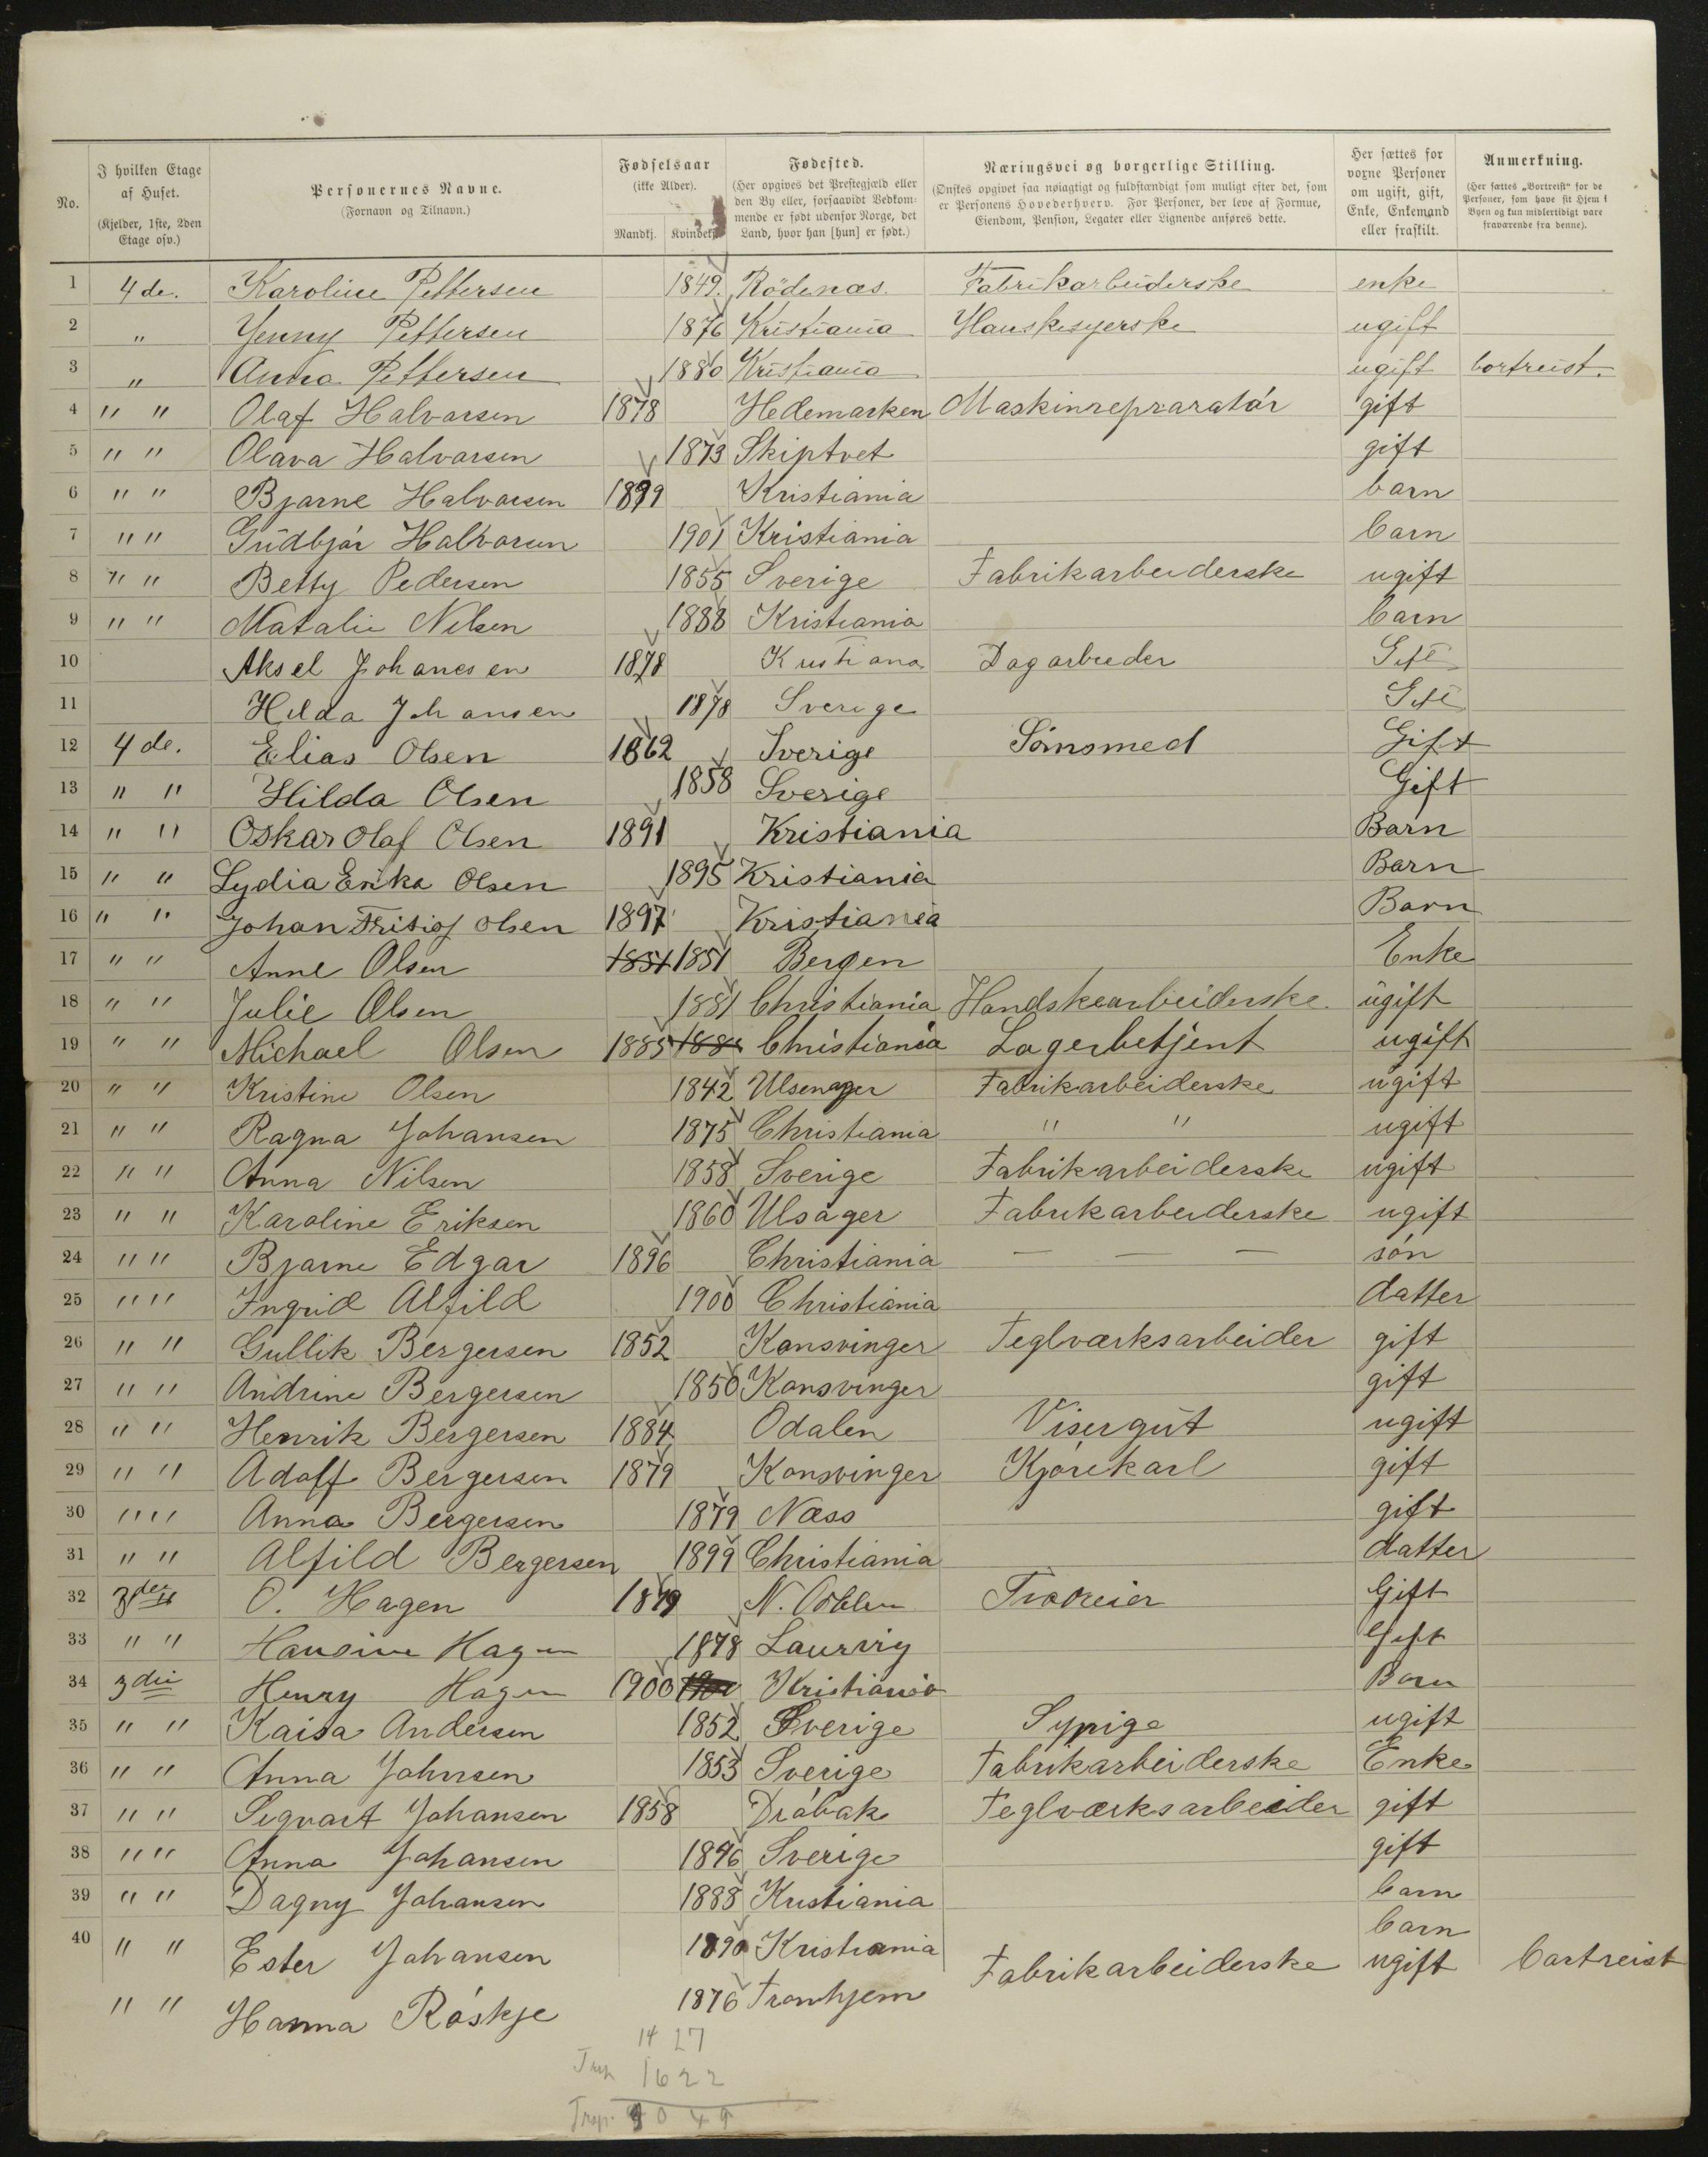 No.
I hvilken Etage af Huset. (Kjelder, 1ste, 2den Etage osv.)
Personernes Navne. (Fornavn og Tilnavn.)
Fødselsaar (ikke Alder). Mandkj. Kvindekj.
Fødested. (Her opgives det Prestegjæld eller den By eller, forsaavidt Vedkommende er født udenfor Norge, det Land, hvor han [hun] er født.)
Næringsvei og borgerlige Stilling. (Ønskes opgivet saa nøiagtigt og fuldstændigt som muligt efter det, som er Personens Hovederhverv. For Personer, der leve af Formue, Eiendom, Pension, Legater eller Lignende anføres dette.
Her sættes for voxne Personer om ugift, gift, Enke, Enkemand eller fraskilt.
Anmerkning. (Her sættes „Bortreist“ for de Personer, som have sit Hjem i Byen og kun midlertidigt vare fraværende fra denne).
1 4 de. Karoline Pettersen 1849. Rödenæs. Fabrikarbeiderske enke
2 " Jenny Pettersen 1876 Kristiania Hanskesyerske ugift
3 " Anna Pettersen 1880 Kristiania ugift bortreist.
4 " " Olaf Halvarsen 1878 Hedemarken Maskinrepraratór gift
5 " " Olava Halvarsen 1873 Skiptvet gift
6 " " Bjarne Halvarsen 1899 Kristiania barn
7 " " Gudbjár Halvarsen 1901 Kristiania barn
8 " " Betty Pedersen 1855 Sverige Fabrikarbeiderske ugift
9 " " Matalie Nilsen 1888 Kristiania barn
10 Aksel Johanesen 1878 Kristiana Dagarbeider Gift
11 Hilda Johansen 1878 Sverige Gift
12 4 de. Elias Olsen 1862 Sverige Sömsmed Gift
13 " " Hilda Olsen 1858 Sverige Gift
14 " " Oskar Olaf Olsen 1891 Kristiania Barn
15 " " Lydia Erika Olsen 1895 Kristiania Barn
16 " " Johan Fritiof Olsen 1897 Kristiania Barn
17 " " Anne Olsen 1851 1851 Bergen Enke
18 " " Julie Olsen 1881 Christiania Handskearbeiderske. ugift
19 " " Michael Olsen 1885 Christiania Lagerbetjent ugift
20 " " Kristine Olsen 1842 Fabrikarbeiderske ugift
21 " " Ragna Johansen 1875 Christiania " " ugift
22 " " Anna Nilsen 1858 Sverige Fabrikarbeiderske ugift
23 " " Karoline Eriksen 1860 Ulsager Fabrikarbeiderske ugift
24 " " Bjarne Edgar 1896 Christiania — — — són
25 " " Ingrid Alfild 1900 Christiania datter
26 " " Gullik Bergersen 1852 Konsvinger Teglværksarbeider gift
27 " " Andrine Bergersen 1850 Konsvinger gift
28 " " Henrik Bergersen 1884 Odalen Visergut ugift
29 " " Adolf Bergersen 1879 Konsvinger Kjörekarl gift
30 " " Anna Bergersen 1879 Næss gift
31 " " Alfild Bergersen 1899 Christiania datter
32 O. Hagen 1879 Gift
33 " " Hansine Hagen 1878 Laurvig Gift
34 3 die Henry Hagen 1900 Kristiania Barn
35 " " Kaisa Andersen 1852 Sverige Sypige ugift
36 " " Anna Johnsen 1853 Sverige Fabrikarbeiderske Enke
37 " " Segvart Johansen 1858 Dróbak Teglværksarbeider gift
38 " " Anna Johansen 1846 Sverige gift
39 " " Dagny Johansen 1888 Kristiania barn
40 " " Ester Johansen 1890 Kristiania barn
" " Hanna Róskje 1876 Tronhjem Fabrikarbeiderske ugift bortreist
14 27
16 22
30 49